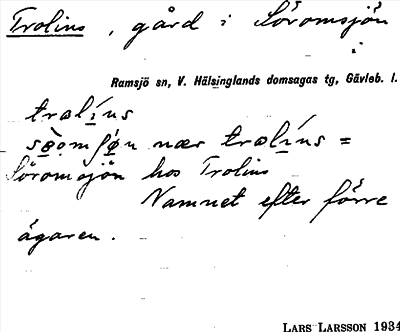 Trolins, gård i Söromsjön
Ramsjö sn, V. Hälsinglands domsagas tg, Gävleb. l.
trælíns
nær trælíns =
Söromsjön hos Trolins
Namnet efter förre
ägaren.
LARS LARSSON 1934